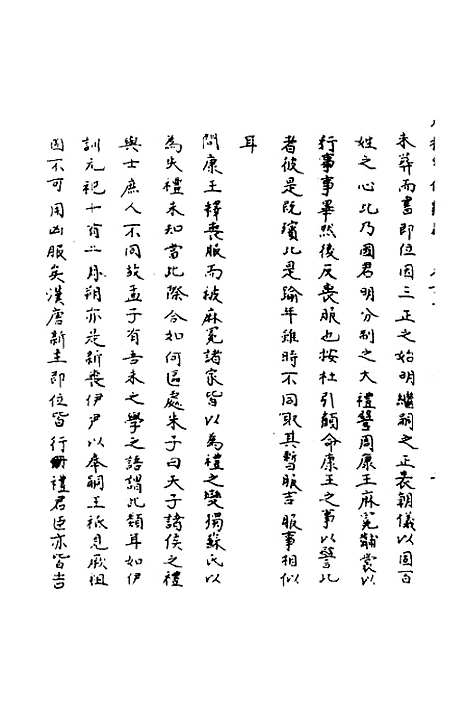 未葬而書即位因三正之始明繼嗣之正表朝儀以固百
姓之心此乃國君明分別之大禮譬周康王麻冕黼裳以
行事事畢然後反喪服也按杜引顧命康王之事以譬此
者彼是既殯此是踰年雖時不同取其暫服吉服事相似
耳
問康王釋喪服而被麻冕諸家皆以為禮之變獨蘇氏以
為失禮未知當此際合如何區處朱子曰天子諸侯之禮
與士庶人不同故孟子有吾未之學之語謂此類耳如伊
訓元祀十有二月朔亦是新喪伊尹以奉嗣王祗見厥祖
固不可用凶服矣漢唐新主即位皆行冊禮君臣亦皆吉